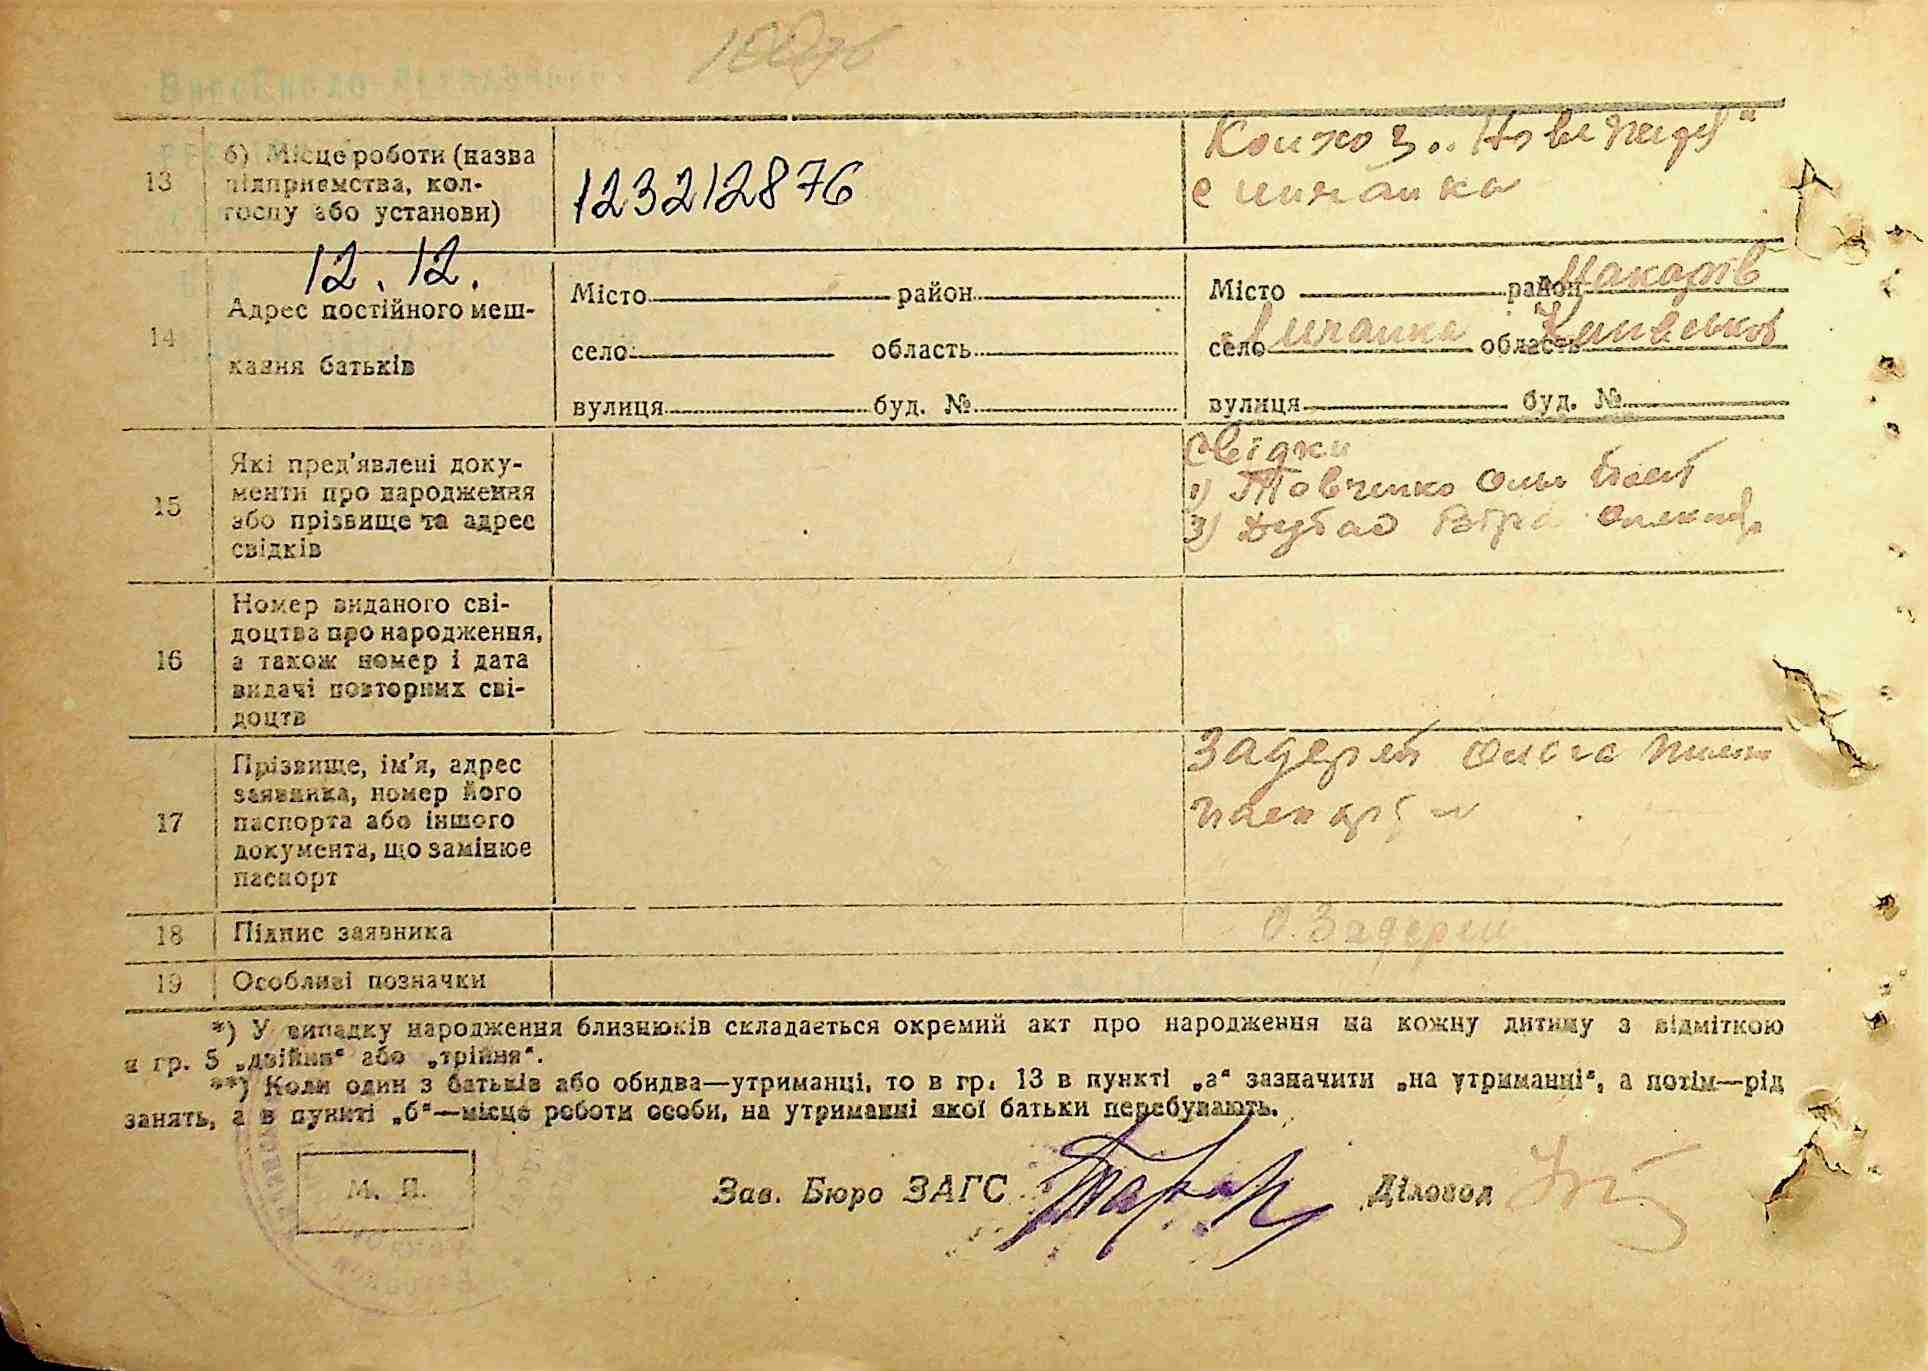 13
б) Місце роботи (назва
підприємства, кол-
госпу або установи)
123212876
Колхоз „Нове життя“
с Личанка
12.12.
14
Адрес постійного меш-
кання батьків
Місто район
село область
вулиця буд. №
Місто район Макарів
село Личанка область Київська
вулиця буд. №
15
Які пред'явлені доку-
менти про народження
або прізвище та адрес
свідків
Свідки
1) Товченко
3)
16
Номер виданого сві-
доцтва про народження,
а також номер і дата
видачі повторних сві-
доцтв
17
Прізвище, ім'я, адрес
заявника, номер його
паспорта або іншого
документа, що замінює
паспорт
Задерей Ольга
18
Підпис заявника
О. Задерей
19
Особливі позначки
*) У випадку народження близнюків складається окремий акт про народження на кожну дитину з відміткою
в гр. 5 „двійня“ або „трійня“.
**) Коли один з батьків або обидва—утриманці, то в гр. 13 в пункті „а“ зазначити „на утриманні“, а потім—рід
занять, а в пункті „б“—місце роботи особи, на утриманні якої батьки перебувають.
М. П.
Зав. Бюро ЗАГС
Діловод